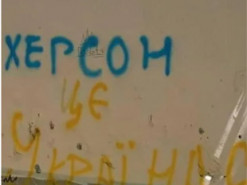 ХЕРСОН
ЦЕ
УКРАЇНА